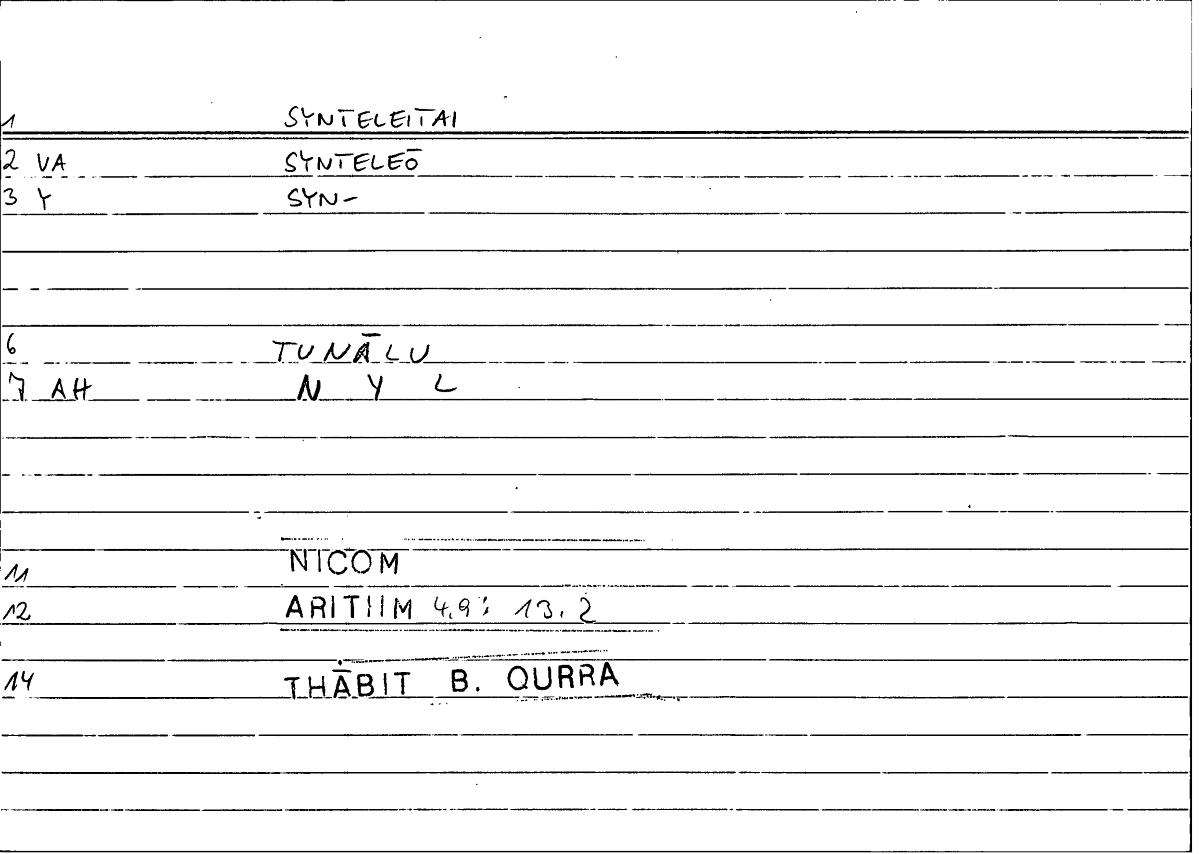 1 SYNTELEITAI
2 VA SYNTELEŌ
3 Y SYN-
6 TUNĀLU
7 AH N Y L
11 NICOM
12 ARITHM 4,9; 13,2
14 THĀBIT B. QURRA